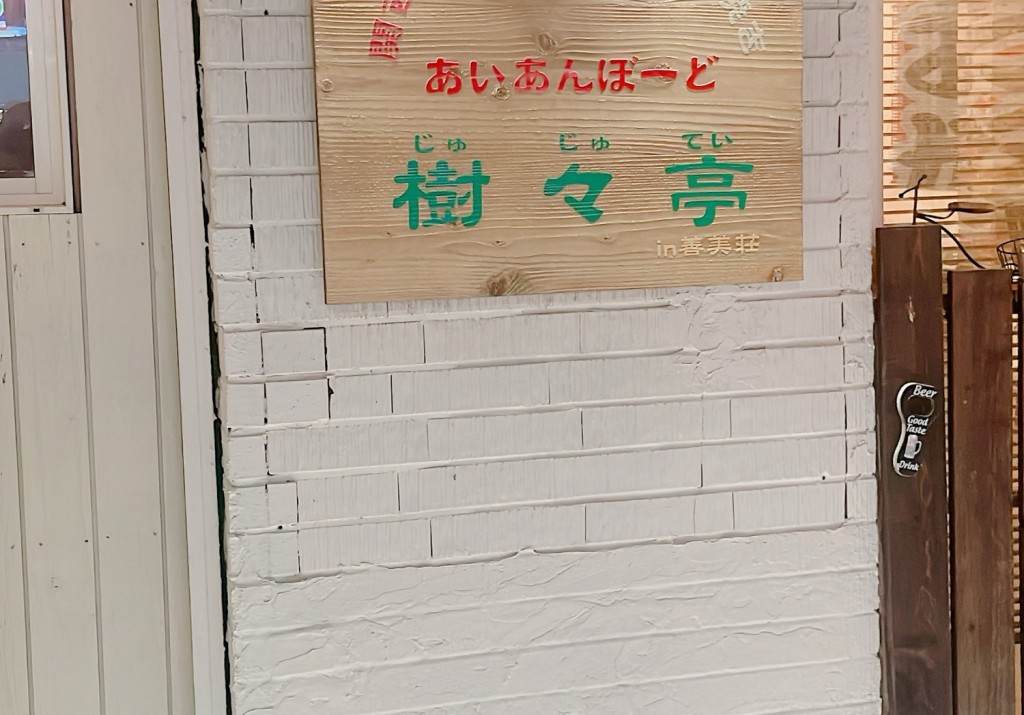 関
あいあんぼーど
じゅ じゅ てい
樹々亭
in善美荘
Beer
Good
Taste
Drink